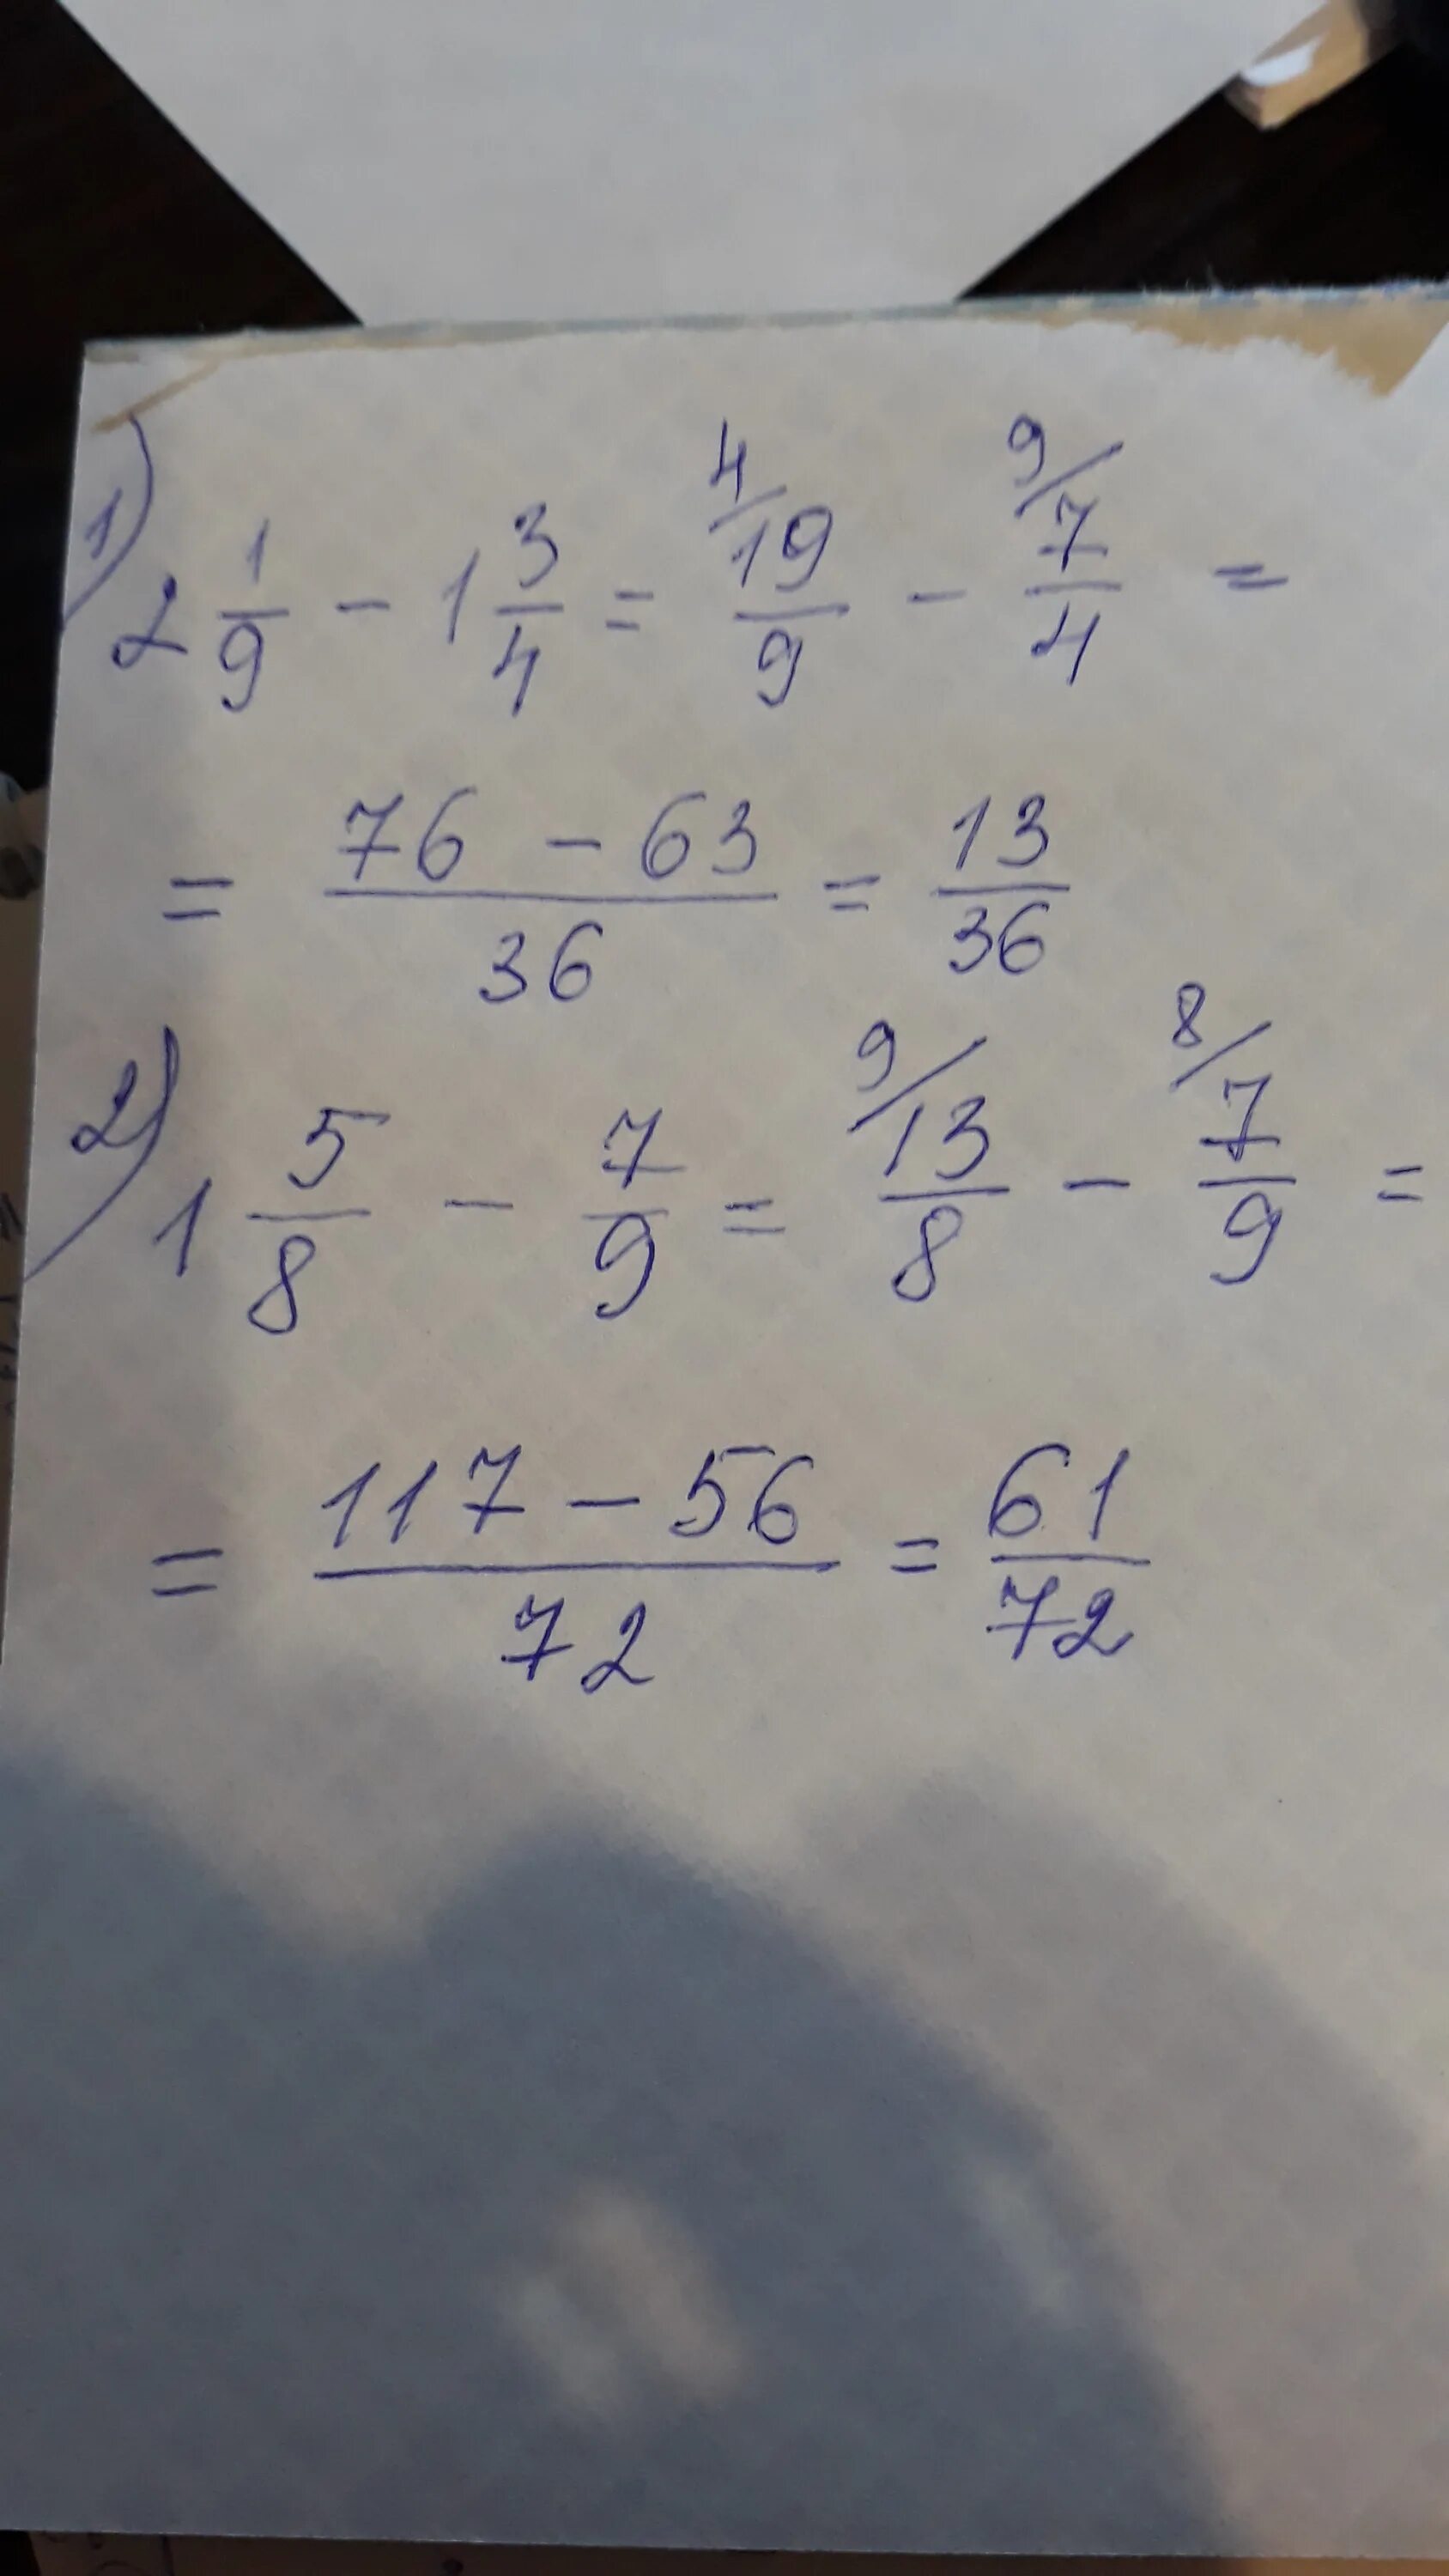 1) 2 1/9 - 1 3/4 = 4/ 19/9 - 9/ 7/4 =
= (76 - 63)/36 = 13/36
2) 1 5/8 - 7/9 = 9/ 13/8 - 8/ 7/9 =
= (117 - 56)/72 = 61/72